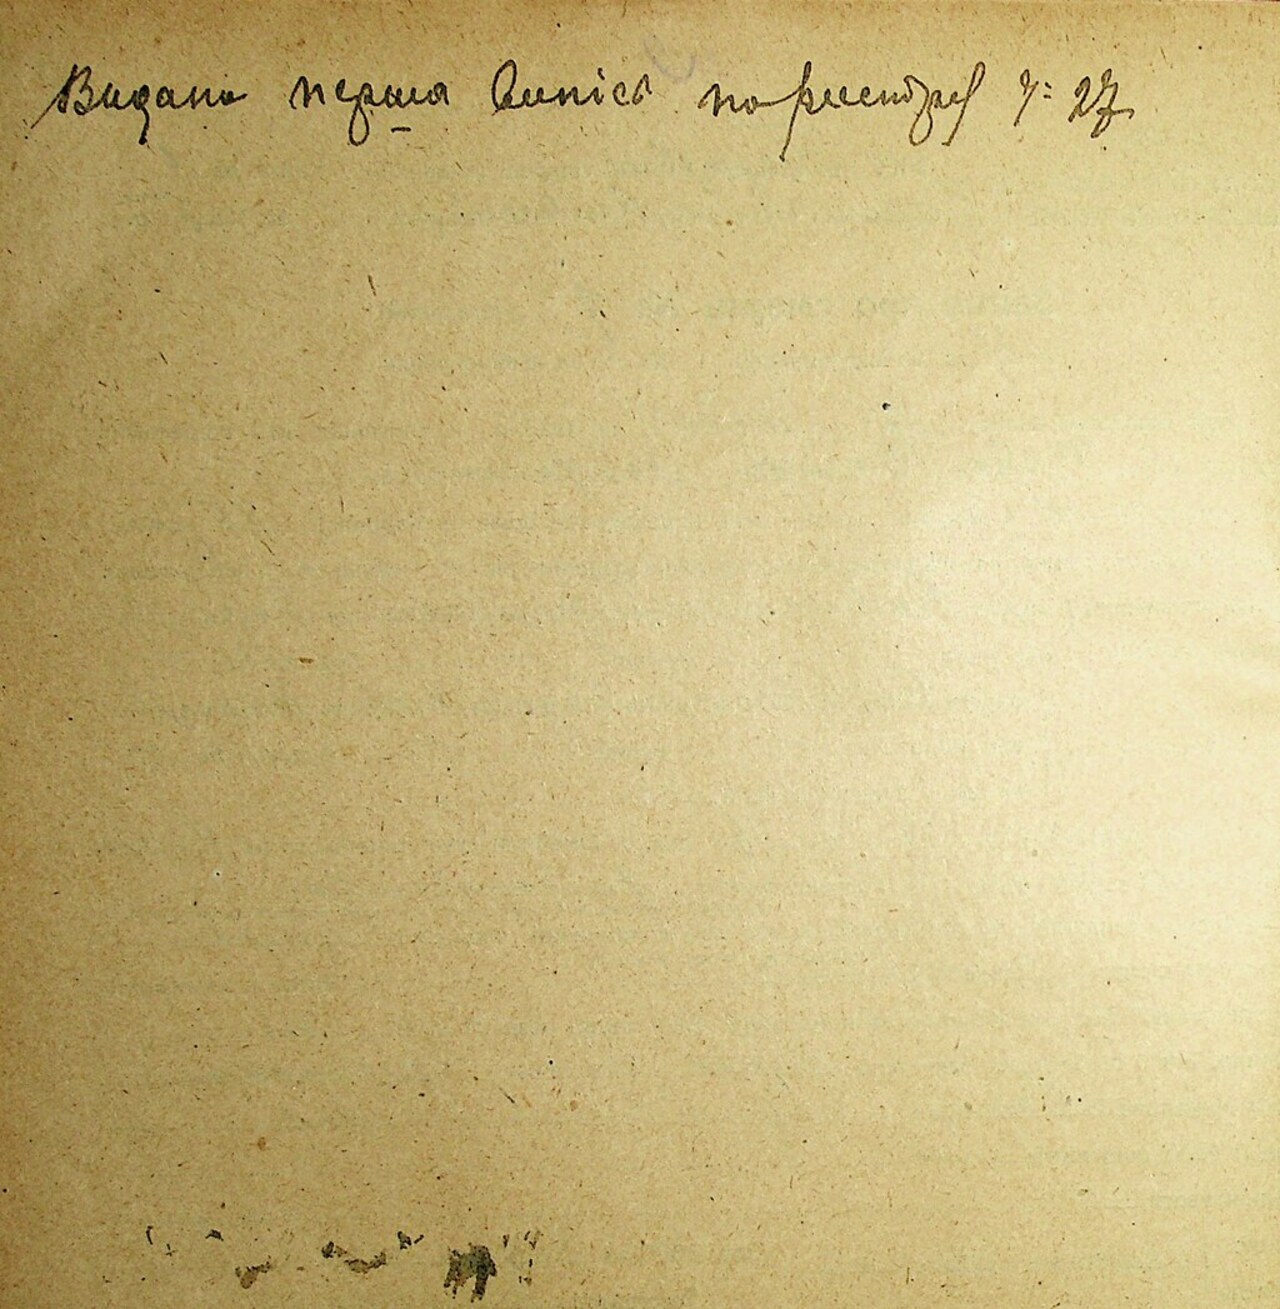 Видано перша випісь по реєстру ч: 27